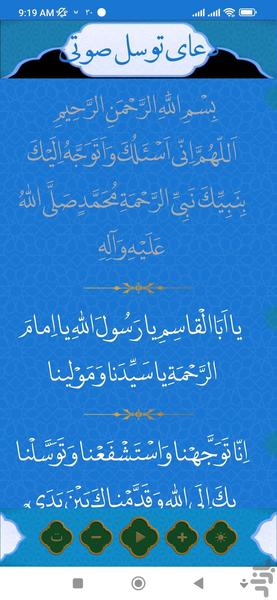 9:19 AM
دعای توسل صوتی
بِسْمِ اللهِ الرَّحْمنِ الرَّحِيمِ
اَللّهُمَّ اِنّى اَسْئَلُكَ وَاَتَوَجَّهُ اِلَيْكَ
بِنَبِيِّكَ نَبِىِّ الرَّحْمَةِ مُحَمَّدٍ صَلَّى اللهُ
عَلَيْهِ وَآلِهِ
يا اَبَاالْقاسِمِ يا رَسُولَ اللهِ يا اِمامَ
الرَّحْمَةِ يا سَيِّدَنا وَمَوْلينا
اِنّا تَوَجَّهْنا وَاسْتَشْفَعْنا وَتَوَسَّلْنا
بِكَ اِلَى اللهِ وَقَدَّمْناكَ بَيْنَ يَدَىْ
ت
بازار